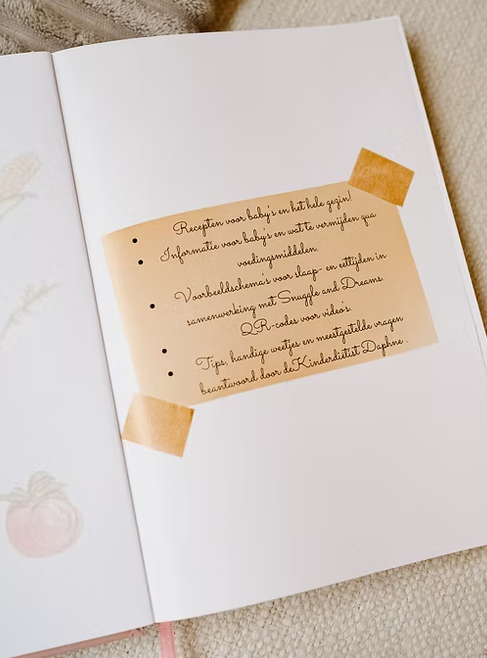 Recepten voor baby's en het hele gezin!
Informatie voor baby's en wat te vermijden qua
voedingsmiddelen.
Voorbeeldschema's voor slaap- en eettijden in
samenwerking met Snuggle and Dreams.
QR-codes voor video's.
Tips, handige weetjes en meestgestelde vragen
beantwoord door deKinderdiëtist Daphne.